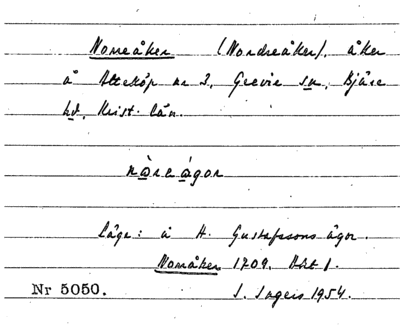 Norreåker (Nordreåker), åker
å Atteköp nr 3, Grevie sn, Bjäre
hd, Krist. län.
Läge: å H. Gustafssons ägor.
Norråker 1709. Akt 1.
Nr 5050. I. Ingers 1954.